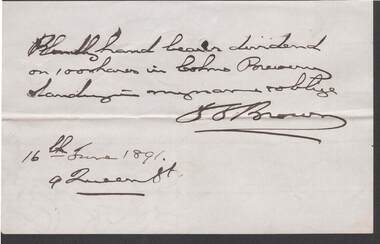 Please hand bearer dividend
on 100 shares in Cohns Brewery
standing in my name & oblige
Brown
16th June 1891.
9 Queen St.